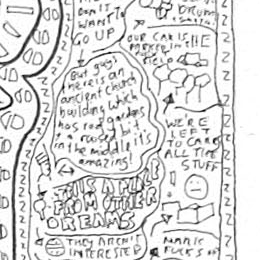 DON'T
WANT TO
GO UP
OUR CAR IS
PARKED IN
THE
FIELD
But guys
there is an
ancient church
building which
has rose gardens
a rocky bit
in the middle it's
amazing!
WE'RE
LEFT
TO CARRY
ALL THE
STUFF
THIS IS A PLACE
FROM OTHER
DREAMS
THEY AREN'T
INTERESTED
MARK
FUCKS OFF